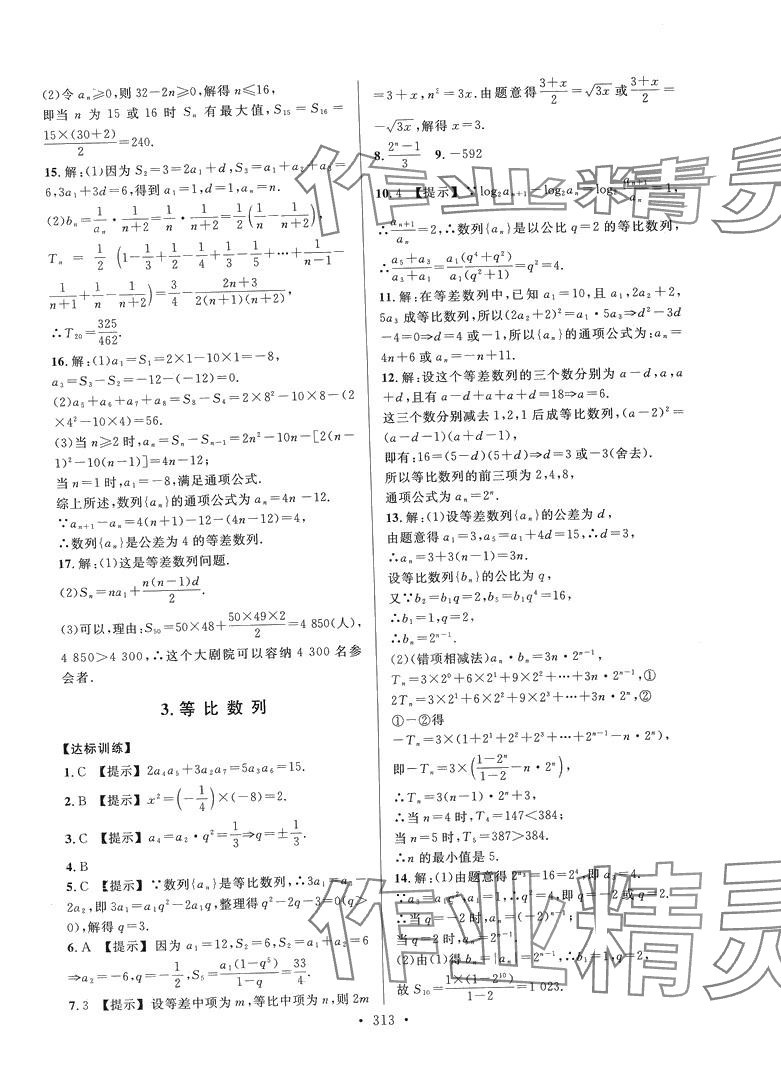 (2)令 aₙ≥0,则 32-2n≥0,解得 n≤16,
即当 n 为 15 或 16 时 Sₙ 有最大值,S₁₅=S₁₆=
15×(30+2)/2=240.
15.解:(1)因为 S₂=3=2a₁+d,S₃=a₁+a₂+a₃=
6,3a₁+3d=6,得到 a₁=1,d=1,aₙ=n.
(2)bₙ=1/aₙ·1/(n+2)=1/n·1/(n+2)=1/2(1/n-1/(n+2)),
Tₙ=1/2(1-1/3+1/2-1/4+1/3-1/5+⋯+1/(n-1)-
1/(n+1)+1/n-1/(n+2))=3/4-(2n+3)/(2(n+1)(n+2)),
∴T₂₀=325/462.
16.解:(1)a₁=S₁=2×1-10×1=-8,
a₃=S₃-S₂=-12-(-12)=0.
(2)a₅+a₆+a₇+a₈=S₈-S₄=2×8²-10×8-(2
×4²-10×4)=56.
(3)当 n≥2 时,aₙ=Sₙ-Sₙ₋₁=2n²-10n-[2(n-
1)²-10(n-1)]=4n-12;
当 n=1 时,a₁=-8,满足通项公式.
综上所述,数列{aₙ}的通项公式为 aₙ=4n-12.
∵aₙ₊₁-aₙ=4(n+1)-12-4n+12=4,
∴数列{aₙ}是公差为 4 的等差数列.
17.解:(1)这是等差数列问题.
(2)Sₙ=na₁+n(n-1)d/2.
(3)可以,理由:S₅₀=50×48+50×49×2/2=4 850(人),
4 850>4 300,∴这个大剧院可以容纳 4 300 名参
会者.
3.等比数列
【达标训练】
1.C 【提示】 2a₄a₅+3a₂a₇=5a₃a₆=15.
2.B 【提示】 x²=(-1/4)×(-8)=2.
3.C 【提示】 a₄=a₂·q²=1/3⇒q=±1/3.
4.B
5.C 【提示】 ∵数列{aₙ}是等比数列,∴3a₁=a₃-
2a₂,即 3a₁=a₁q²-2a₁q,整理得 q²-2q-3=0(q>
0),解得 q=3.
6.A 【提示】 因为 a₁=12,S₂=6,S₂=a₁+a₂=6
⇒a₂=-6,q=-1/2,S₅=a₁(1-q⁵)/(1-q)=33/4.
7.3 【提示】 设等差中项为 m,等比中项为 n,则 2m
=3+x,n²=3x.由题意得(3+x)/2=√3x或(3+x)/2=
-√3x,解得 x=3.
8.(2ⁿ-1)/3 9.-592
10.4 【提示】 ∵log₂aₙ₊₁-log₂aₙ=log₂aₙ₊₁/aₙ=1,
∴aₙ₊₁/aₙ=2,∴数列{aₙ}是以公比 q=2 的等比数列,
∴(a₅+a₃)/(a₃+a₁)=a₁(q⁴+q²)/(a₁(q²+1))=q²=4.
11.解:在等差数列中,已知 a₁=10,且 a₁,2a₂+2,
5a₃成等比数列,所以(2a₂+2)²=a₁·5a₃⇒d²-3d
-4=0⇒d=4 或-1,所以{aₙ}的通项公式为:aₙ=
4n+6 或 aₙ=-n+11.
12.解:设这个等差数列的三个数分别为 a-d,a,a
+d,且有 a-d+a+a+d=18⇒a=6.
这三个数分别减去 1,2,1 后成等比数列,(a-2)²=
(a-d-1)(a+d-1),
即有:16=(5-d)(5+d)⇒d=3 或-3(舍去).
所以等比数列的前三项为 2,4,8,
通项公式为 aₙ=2ⁿ.
13.解:(1)设等差数列{aₙ}的公差为 d,
由题意得 a₁=3,a₅=a₁+4d=15,∴d=3;
∴aₙ=3+3(n-1)=3n.
设等比数列{bₙ}的公比为 q,
又∵b₂=b₁q=2,b₅=b₁q⁴=16,
∴b₁=1,q=2,
∴bₙ=2ⁿ⁻¹.
(2)(错项相减法)aₙ·bₙ=3n·2ⁿ⁻¹,
Tₙ=3×2⁰+6×2¹+9×2²+⋯+3n·2ⁿ⁻¹,①
2Tₙ=3×2¹+6×2²+9×2³+⋯+3n·2ⁿ,②
①-②得
-Tₙ=3×(1+2¹+2²+2³+⋯+2ⁿ⁻¹-n·2ⁿ),
即-Tₙ=3×((1-2ⁿ)/(1-2)-n·2ⁿ),
∴Tₙ=3(n-1)·2ⁿ+3,
∴当 n=4 时,T₄=147<384;
当 n=5 时,T₅=387>384.
∴n 的最小值是 5.
14.解:(1)由题意得 2ᵃ³=16=2⁴,即 a₃=4.
∵a₃=a₁q²,a₁=1,∴q²=4,即 q=-2 或 q=2.
∴当 q=-2 时,aₙ=(-2)ⁿ⁻¹,
当 q=2 时,aₙ=2ⁿ⁻¹.
(2)由(1)得 bₙ=|aₙ|=2ⁿ⁻¹,b₁=1,q=2,
故 S₁₀=1×(1-2¹⁰)/(1-2)=1 023.
· 313 ·
作业精灵
作业精灵